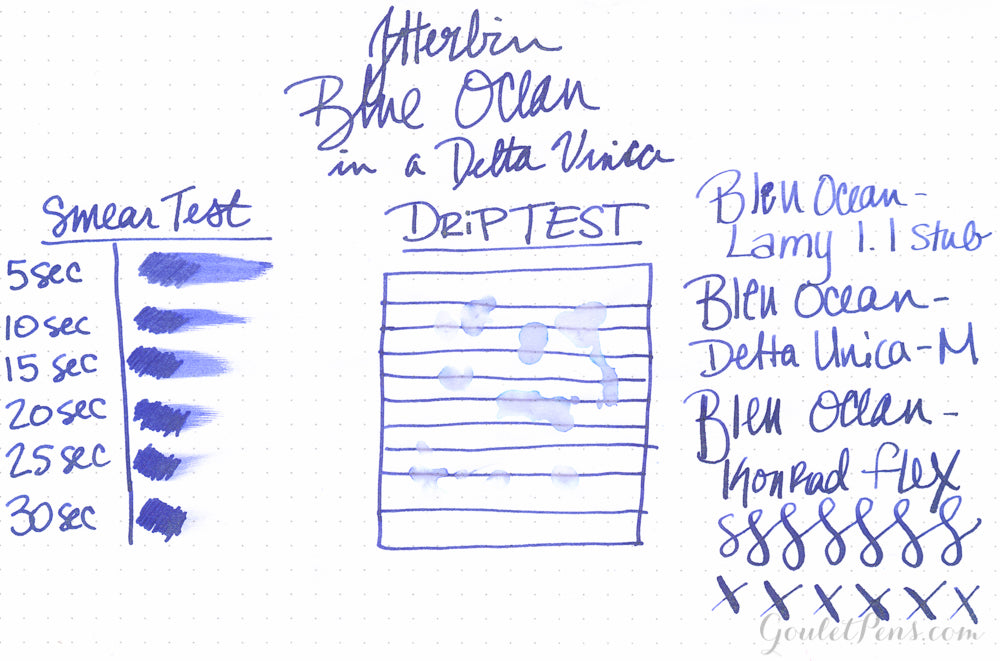 JHerbin
Blue Ocean
in a Delta Unica
Smear Test
5 sec
10 sec
15 sec
20 sec
25 sec
30 sec
DRiP TEST
Bleu Ocean -
Lamy 1.1 stub
Bleu Ocean -
Delta Unica - M
Bleu Ocean -
Konrad flex
s s s s s s s
x x x x x x
GouletPens.com